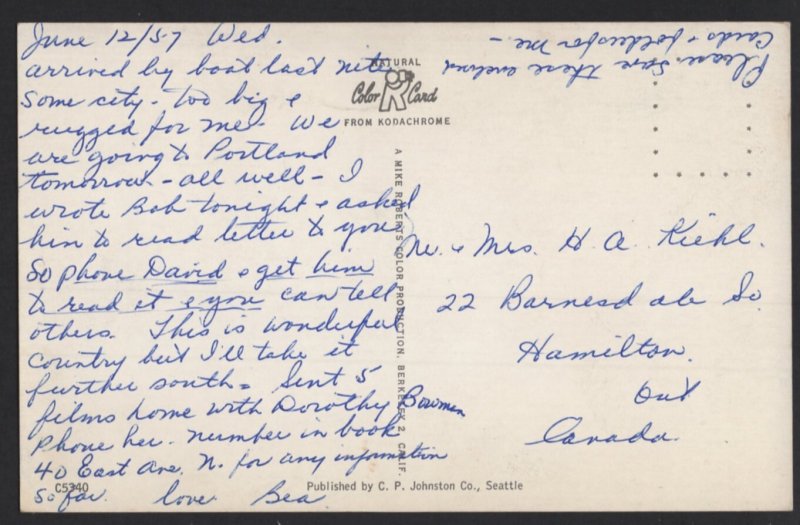 June 12/57 Wed.
arrived by boat last nite
Some city. Too big &
rugged for me. We
are going to Portland
tomorrow - all well - I
wrote Bob tonight & asked
him to read letter to you
So phone David & get him
to read it & you can tell
others. This is wonderful
country but I'll take it
further south. Sent 5
films home with Dorothy Bowman
Phone her. number in book
40 East Ave. N. for any information
So far. love Bea
C5340
Please Save these enclosed
Cards & folders for me. -
NATURAL
Color Card
FROM KODACHROME
A MIKE ROBERTS COLOR PRODUCTION, BERKELEY 2, CALIF.
Mr. & Mrs. H. A. Kiehl.
22 Barnesdale So.
Hamilton.
Ont
Canada.
Published by C. P. Johnston Co., Seattle